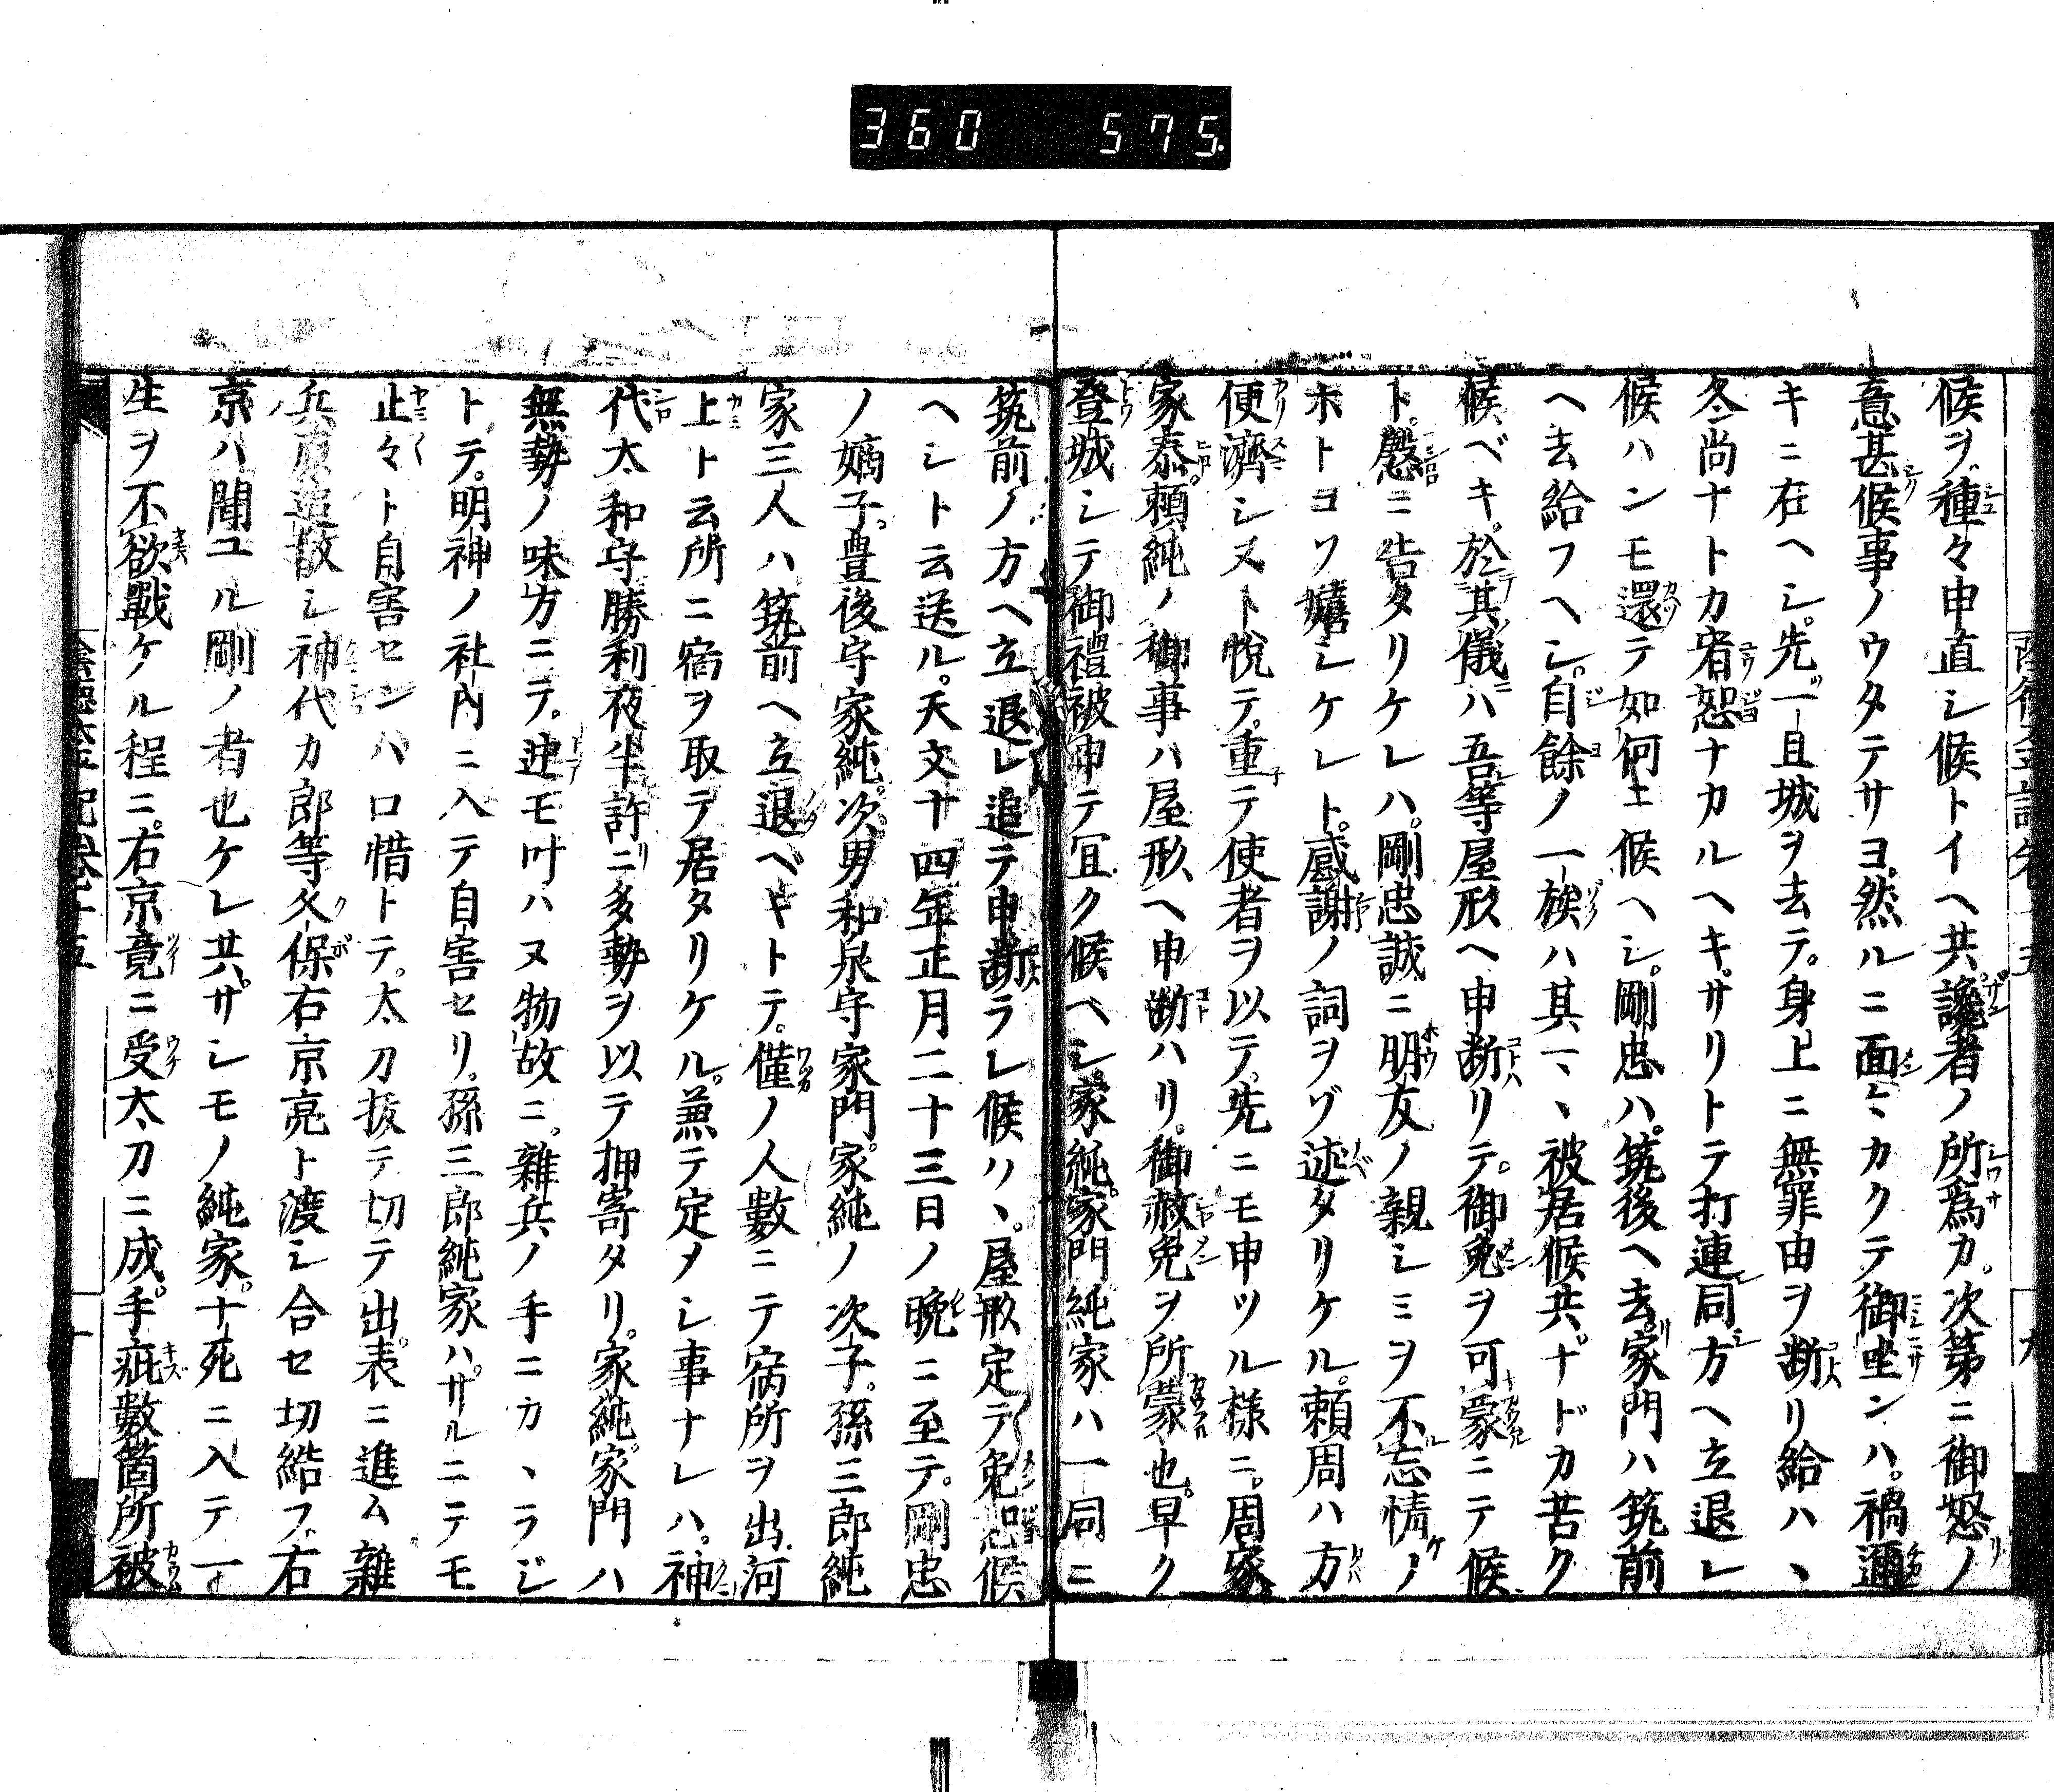 360 575.
候ヲ種々申直シ候トイヘ共讒者ノ所爲カ次第ニ御怒ノ
意甚候事ノウタテサヨ然ルニ面々カクテ御坐ンハ禍邇
キニ在ヘシ先一且城ヲ去テ身上ニ無罪由ヲ断リ給ハヽ
冬尚ナトカ宥恕ナカルヘキサリトテ打連同方ヘ立退レ
候ハンモ還テ如何ニ候ヘシ剛忠ハ筑後ヘ去家門ハ筑前
ヘ去給フヘシ自餘ノ一族ハ其マヽ被居候共ナドカ苦ク
候ベキ於其儀ハ吾等屋形ヘ申断リテ御免ヲ可蒙ニテ候
ト慇ニ告タリケレハ剛忠誠ニ朋友ノ親シミヲ不忘情ノ
ホトコソ嬉シケレト感謝ノ詞ヲゾ述タリケル頼周ハ方
便濟シヌト悅テ重テ使者ヲ以テ先ニモ申ツル様ニ周家
家泰頼純ノ御事ハ屋形ヘ申断ハリ御赦免ヲ所蒙也早ク
登城シテ御禮被申テ冝ク候ヘシ家純家門純家ハ一同ニ
筑前ノ方ヘ立退レ追テ申断ラレ候ハヽ屋形定テ免恕候
ヘシト云送ル天文十四年正月二十三日ノ晩ニ至テ剛忠
ノ嫡子豊後守家純次男和泉守家門家純ノ次子孫三郎純
家三人ハ筑前ヘ立退ベキトテ僅ノ人數ニテ宿所ヲ出河
上ト云所ニ宿ヲ取テ居タリケル兼テ定メシ事ナレハ神
代大和守勝利夜半許ニ多勢ヲ以テ押寄タリ家純家門ハ
無勢ノ味方ニテ迚モ叶ハヌ物故ニ雜兵ノ手ニカヽラジ
トテ明神ノ社內ニ入テ自害セリ孫三郎純家ハサルニテモ
止々ト自害センハ口惜トテ太刀抜テ切テ出表ニ進ム雜
兵原追散シ神代カ郎等久保右京亮ト渡シ合セ切結フ右
京ハ聞ユル剛ノ者也ケレ共サシモノ純家十死ニ入テ一
生ヲ不欲戰ケル程ニ右京竟ニ受太刀ニ成手疵數箇所被